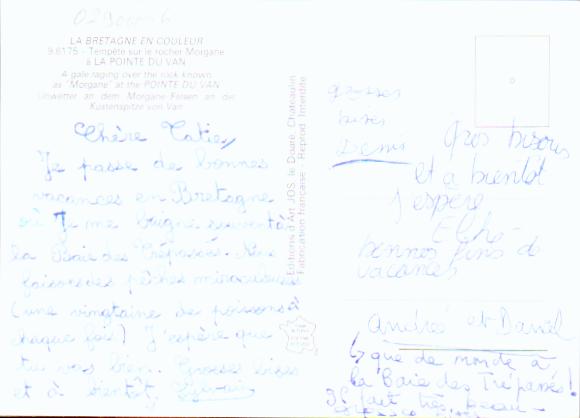 LA BRETAGNE EN COULEUR
9.6175 - Tempête sur le rocher Morgane
à LA POINTE DU VAN
A gale raging over the rock known
as "Morgane" at the POINTE DU VAN
Unwetter an dem Morgane-Felsen an der
Küstenspitze von Van
Chère Tatie,
Je passe de bonnes
vacances en Bretagne
où je me baigne souvent à
la Baie des Trépassés. Nous
faisons des pêches miraculeuses
(une vingtaine de poissons à
chaque fois) J'espère que
tu vas bien. Grosses bises
et à bientôt,
Editions d'Art JOS le Doaré, Chateaulin
Fabrication française - Reprod. Interdite
grosses
bises
Denis
Gros bisous
et à bientôt
j'espère
bonnes fins de
vacances
André et Daniel
que de monde à
la Baie des Trépassés!
Il fait très beau -